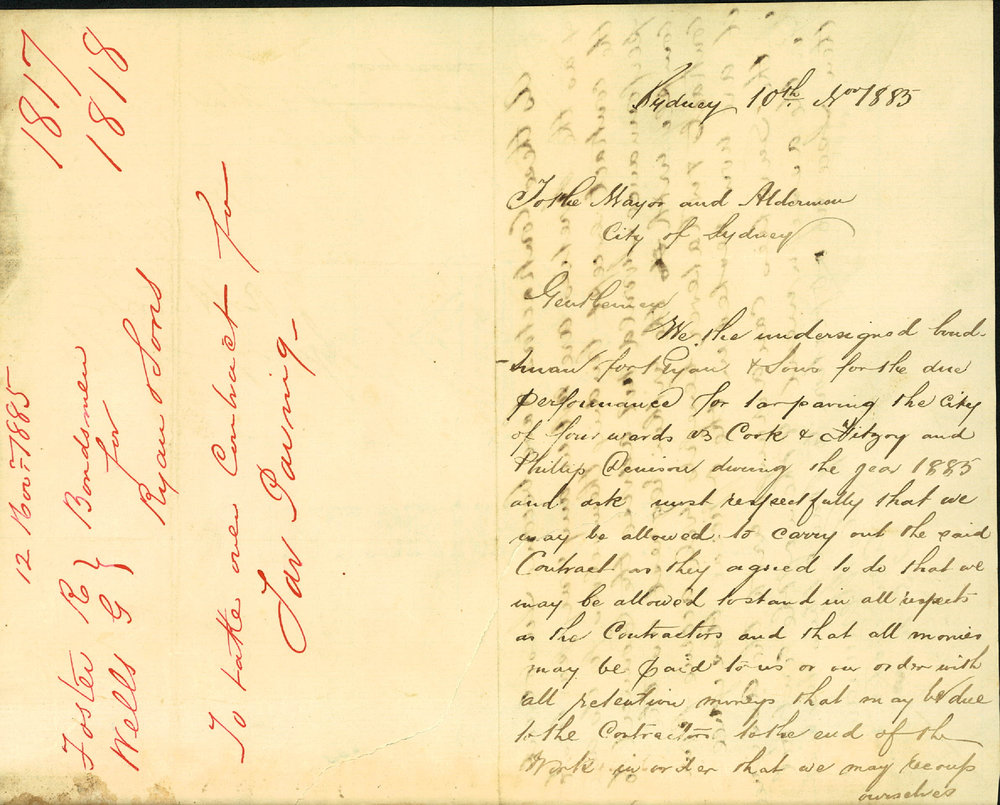 1817
1818
12 Novr 1885
Foster R } Bondsmen
Wells G } for
Ryan & Sons
To take over Contract for
Tar Paving
Sydney 10th Nov 1885
To the Mayor and Aldermen
City of Sydney
Gentlemen
We the undersigned bond-
-sman for Ryan & Sons for the due
performance for tarpaving the city
of four wards Cook & Fitzroy and
Phillip Denison during the year 1885
and ask most respectfully that we
may be allowed to carry out the said
Contract as they agreed to do that we
may be allowed to stand in all respects
as the Contractors and that all monies
may be paid to us or our order with
all retention moneys that may be due
to the Contractors to the end of the
Work in order that we may recoup
ourselves